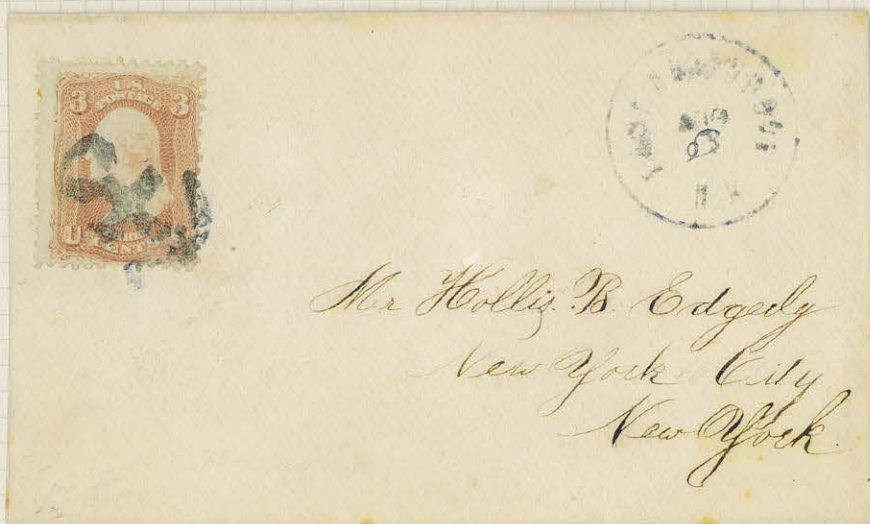 U.S.
POSTAGE
3 3
U
CENTS
AUG
8
N Y
Mr Hollis. B. Edgedy
New York City
New York.